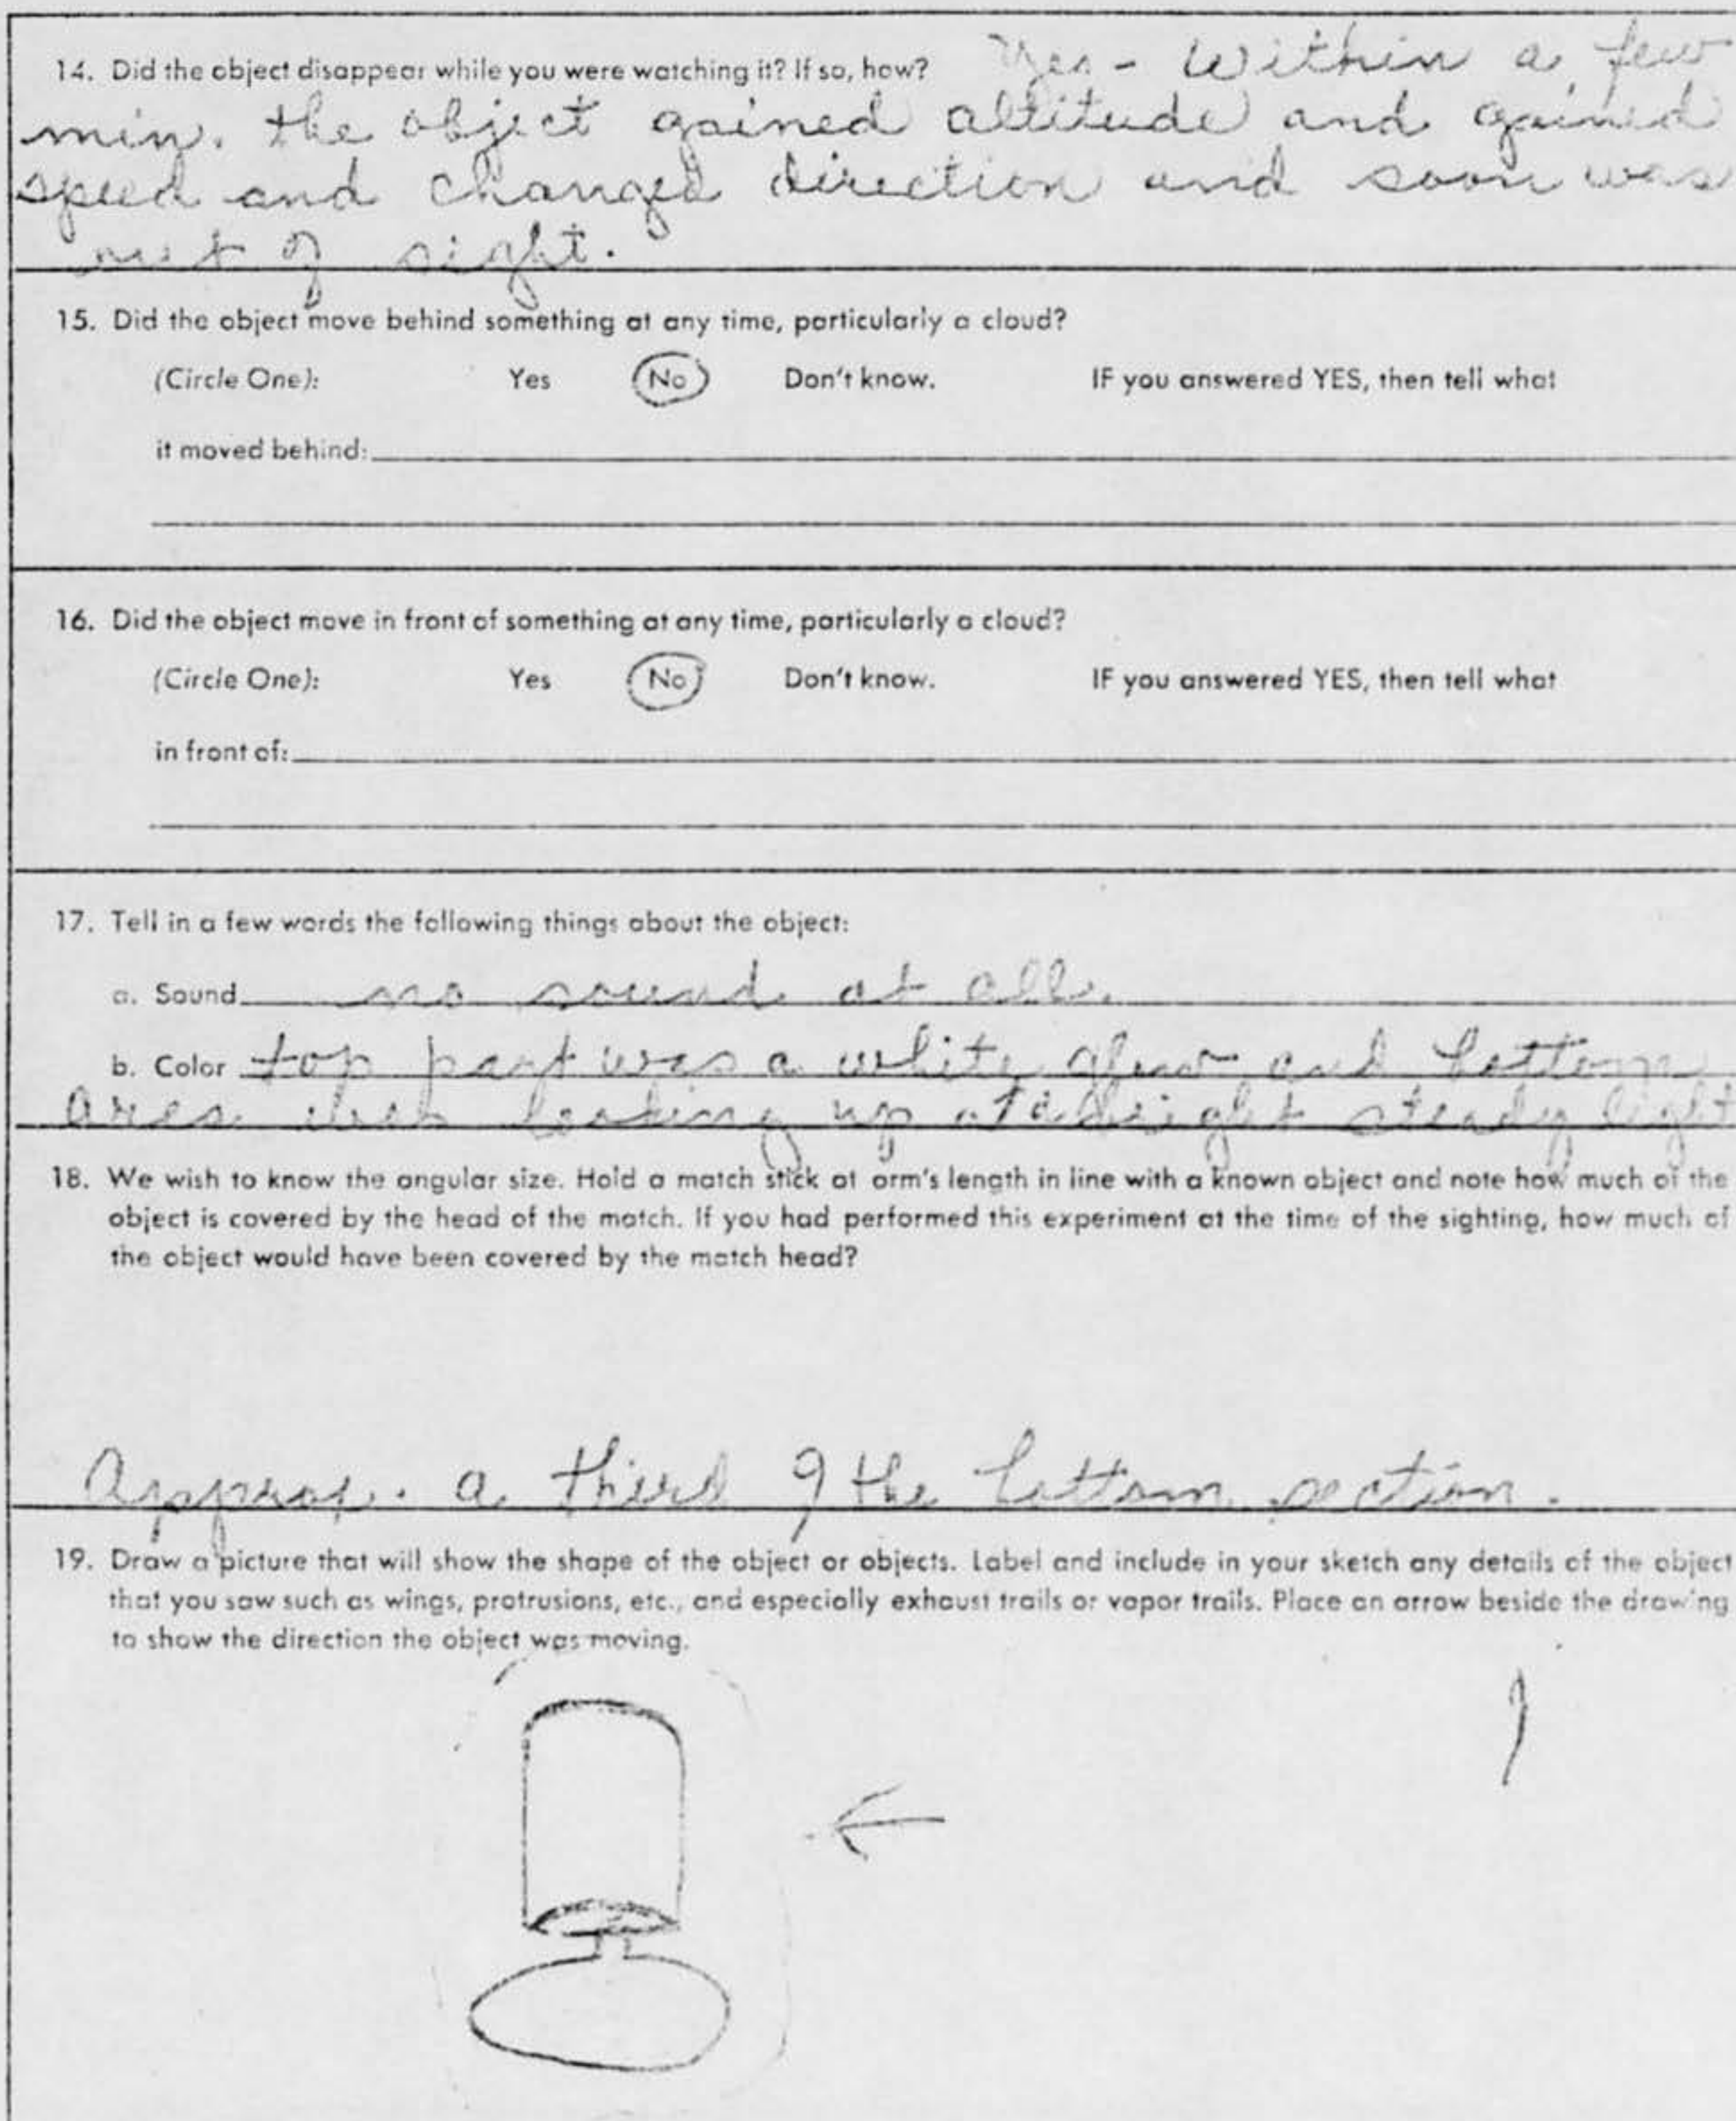 14. Did the object disappear while you were watching it? If so, how? Yes - Within a few
min. the object gained altitude and gained
speed and changed direction and soon was
out of sight.
15. Did the object move behind something at any time, particularly a cloud?
(Circle One): Yes No Don't know. IF you answered YES, then tell what
it moved behind:
16. Did the object move in front of something at any time, particularly a cloud?
(Circle One): Yes No Don't know. IF you answered YES, then tell what
in front of:
17. Tell in a few words the following things about the object:
a. Sound no sound at all.
b. Color top part was a white glow and bottom
area when looking up at a bright steady light
18. We wish to know the angular size. Hold a match stick at arm's length in line with a known object and note how much of the
object is covered by the head of the match. If you had performed this experiment at the time of the sighting, how much of
the object would have been covered by the match head?
Approx. a third of the bottom section.
19. Draw a picture that will show the shape of the object or objects. Label and include in your sketch any details of the object
that you saw such as wings, protrusions, etc., and especially exhaust trails or vapor trails. Place an arrow beside the drawing
to show the direction the object was moving.